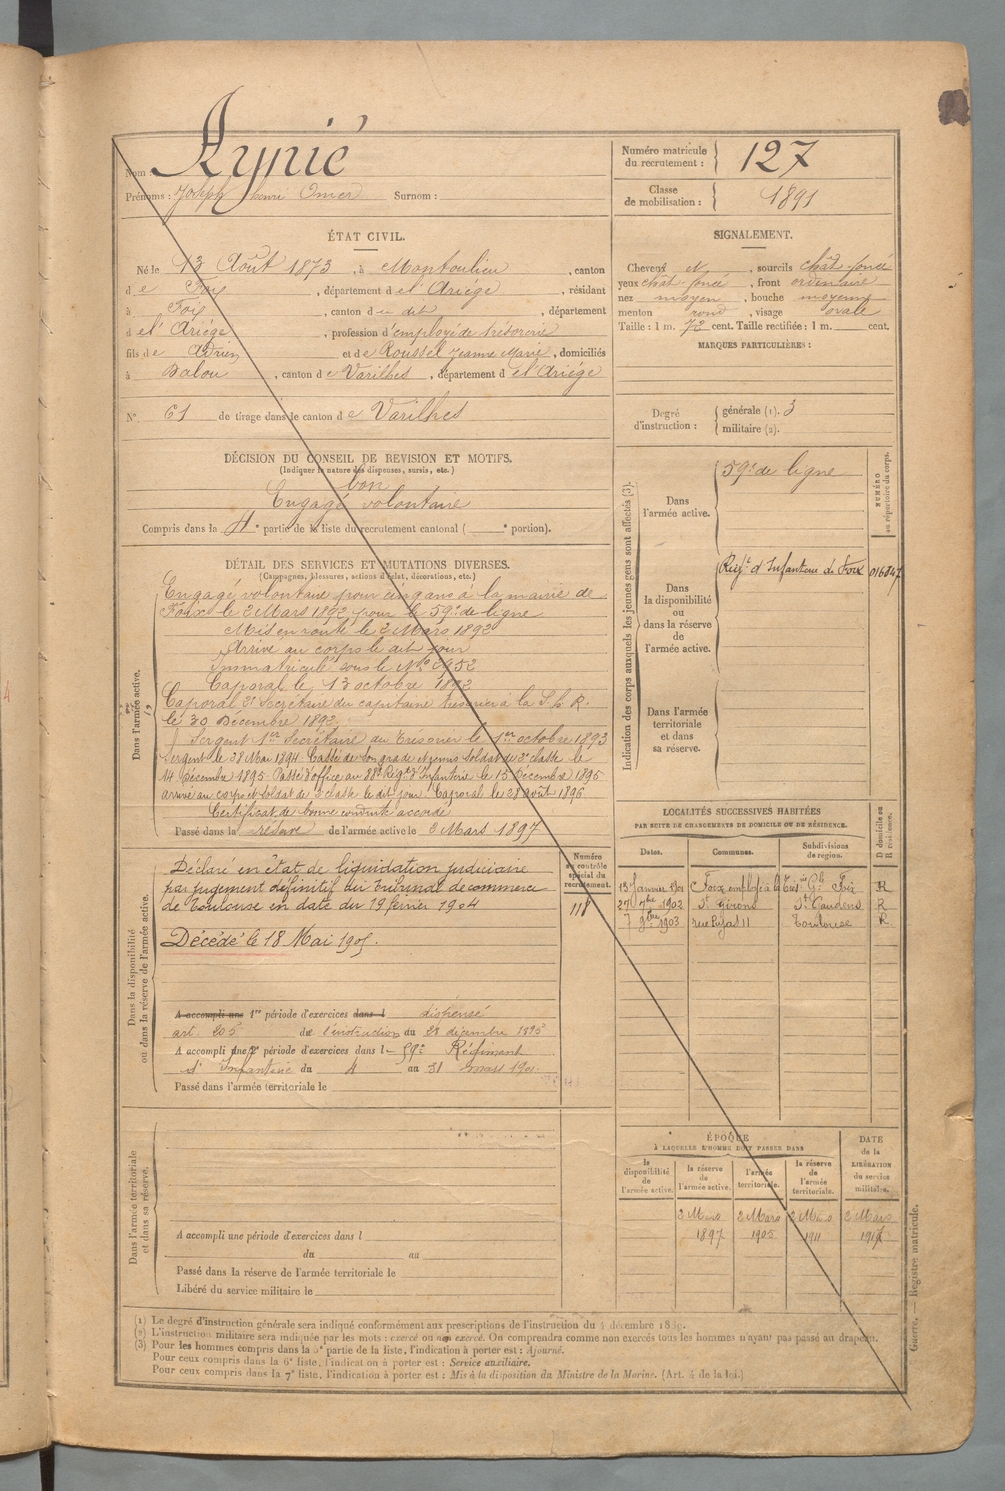 Nom Aynié
Prénoms : Joseph henri Omer Surnom :
Numéro matricule du recrutement : 127
Classe de mobilisation : 1891
ÉTAT CIVIL.
Né le 13 Août 1873, à Montoulieu, canton
de Foix, département de l'Ariége, résidant
à Foix, canton du dit, département
de l'Ariége, profession d'employé de trésorerie
fils de Adrien et de Roussel Jeanne Marie, domiciliés
à Dalou, canton de Varilhes, département de l'Ariége
N° 61 de tirage dans le canton de Varilhes
SIGNALEMENT.
Cheveux et, sourcils chât foncé
yeux chât foncé, front ordinaire
nez moyen, bouche moyenne
menton rond, visage ovale
Taille : 1 m. 72 cent. Taille rectifiée : 1 m. cent.
MARQUES PARTICULIÈRES :
Degré d'instruction : générale (1). 3
militaire (2).
DÉCISION DU CONSEIL DE REVISION ET MOTIFS.
(Indiquer la nature des dispenses, sursis, etc.)
bon
Engagé volontaire
Compris dans la 4e partie de la liste du recrutement cantonal ( e portion).
DÉTAIL DES SERVICES ET MUTATIONS DIVERSES.
(Campagnes, blessures, actions d'éclat, décorations, etc.)
Dans l'armée active.
Engagé volontaire pour cinq ans à la mairie de
Foix le 2 Mars 1892 pour le 59e de ligne
Mis en route le 2 Mars 1892
Arrivé au corps le dit jour
Immatriculé sous le No 3952
Caporal le 13 octobre 1892
Caporal 2e Secrétaire du capitaine trésorier à la S.h.R.
le 30 Décembre 1892.
Sergent 1er Secrétaire du Trésorier le 1er octobre 1893
Sergent le 28 Mai 1894. Cassé de son grade et remis soldat de 2e classe le
14 Décembre 1895. Passé d'office au 88e Régt d'Infanterie le 15 Décembre 1895
arrivé au corps et soldat de 2e classe le dit jour. Caporal le 28 août 1896
Certificat de bonne conduite accordé
Passé dans la réserve de l'armée active le 2 Mars 1897
Indication des corps auxquels les jeunes gens sont affectés (3).
NUMÉRO au répertoire du corps.
Dans l'armée active. 59e de ligne
Dans la disponibilité ou dans la réserve de l'armée active. Régt d'Infanterie de Foix 016847
Dans l'armée territoriale et dans sa réserve.
LOCALITÉS SUCCESSIVES HABITÉES
PAR SUITE DE CHANGEMENTS DE DOMICILE OU DE RÉSIDENCE.
Dates. Communes. Subdivisions de region. D domicile ou R résidence.
13 Janvier 1901 Foix employé à la Foix R
27 7bre 1902 St Girons St Gaudens R
7 9bre 1903 rue Pujas 11 Toulouse R.
Dans la disponibilité ou dans la réserve de l'armée active.
Numéro au contrôle spécial du recrutement.
118
Déclaré en état de liquidation judiciaire
par jugement définitif du tribunal de commerce
de Toulouse en date du 19 février 1904
Décédé le 18 Mai 1905.
A accompli une 1re période d'exercices dans l dispensé
art. 205 de l'instruction du 28 décembre 1895
A accompli une 2e période d'exercices dans le 59e Régiment
d'Infanterie du 4 au 31 mars 190
Passé dans l'armée territoriale le
ÉPOQUE
À LAQUELLE L'HOMME DOIT PASSER DANS
DATE de la LIBÉRATION du service militaire.
la disponibilité de l'armée active. la réserve de l'armée active. l'armée territoriale. la réserve de l'armée territoriale.
2 Mars 2 Mars 2 Mars 2 Mars
1897 1905 1911 1917
Dans l'armée territoriale et dans sa réserve.
A accompli une période d'exercices dans l
du au
Passé dans la réserve de l'armée territoriale le
Libéré du service militaire le
(1) Le degré d'instruction générale sera indiqué conformément aux prescriptions de l'instruction du 4 décembre 1889.
(2) L'instruction militaire sera indiquée par les mots : exercé ou non exercé. On comprendra comme non exercés tous les hommes n'ayant pas passé au drapeau.
(3) Pour les hommes compris dans la 5e partie de la liste, l'indication à porter est : Ajourné.
Pour ceux compris dans la 6e liste, l'indication à porter est : Service auxiliaire.
Pour ceux compris dans la 7e liste, l'indication à porter est : Mis à la disposition du Ministre de la Marine. (Art. 4 de la loi.)
Guerre. — Registre matricule.